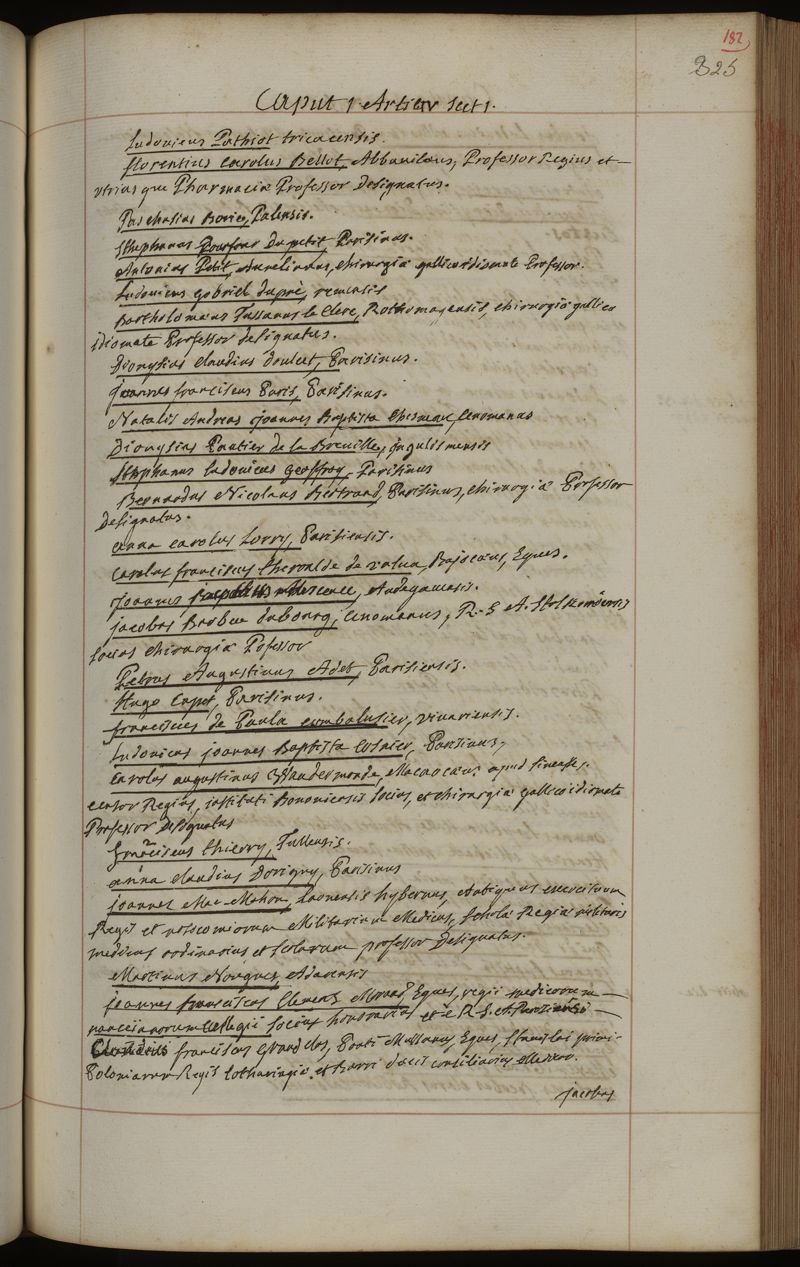 182
325
Caput 1 Articr sect 1.
Ludovicus Pathiot tricacensis.
florentius carolus Bellot, Abbavilaeus, Professor Regius et
utrius que Pharmaciæ Professor Designatus.
Paschasius Borie, Palensis.
Stephanus Pourfour Dupetit, Parisinus.
Antonius Petit, Aurelianus, chirurgiæ gallico idiomate Professor.
Ludovicus gabriel dupré, remensis
Bartholomæus Tussanus le Clerc, Rothomagensis, chirurgiæ gallico
idiomate Professor designatus.
Dionysius claudius doulcet, Parisinus.
joannes franciscus Paris, Parisinus.
Natalis Andreas joannes Baptista Chesneau, Cenomanus
Dionysius Pautier de la Breuille, inguli mensis
Stephanus ludovicus geoffroy, Parisinus
Bernardus Nicolaus Bertrand, Parisinus, chirurgiæ Professor
Designatus.
anna carolus Lorry, Parisiensis.
carolus franciscus thervalde de valun, Bajocæus, Eques.
joannes Descemet, Andegavensis.
jacobus Barbeu dubourg, Cenomanus, R. S et A. Stolkomiensis
socius chirurgiæ Pofessor
Petrus Augustinus Adet, Parisiensis.
Hugo Capet, Parisinus.
franciscus de Paula combalusier, vivariensis.
Ludovicus joannes Baptista Cosnier, Parisinus,
carolus augustinus Vandermonde, Macaocæus apud sinenses,
censor Regius, instituti Bononiensis socius, et chirurgiæ gallico idiomate
Professor Designatus
franciscus thierry, Tullensis.
anna claudius Dorigny, Parisinus
joannes Mac-Mahon, Laonensis hybernus, Antiquus exercituum
Regis et nosocomiorum Militarium Medicus, scholæ Regiæ militaris
medicus ordinarius et scolarum professor Designatus.
Martinus Nougues, Adurensis
joannes franciscus Clemens Morand, Eques, regii medicorum
nanceianorum collegii socius honorarius et è R. S. Parisiensi
Claudius franciscus grandclos, Ponti Mussanus, Eques, stanislai primi
Poloniarum Regis lotharingiæ et Barri ducis consiliarius
jacobus